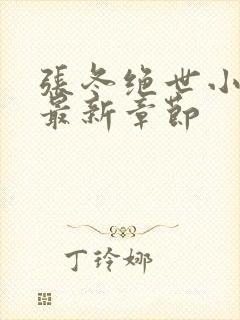 張冬绝世小
最新章節
丁玲娜